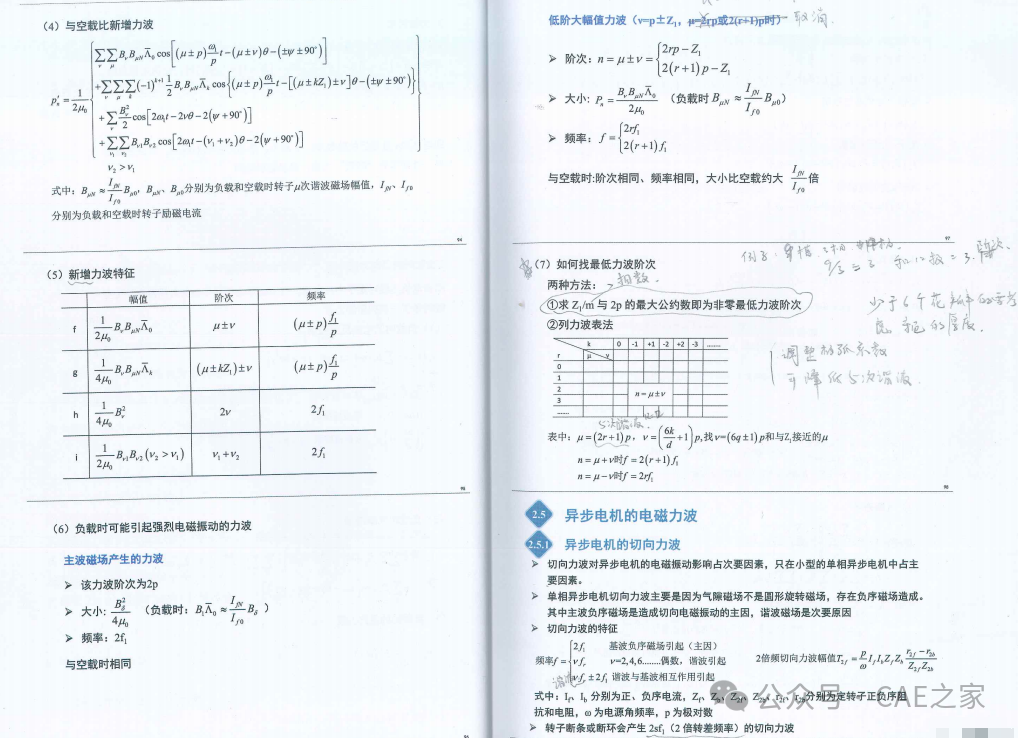 (4) 与空载比新增力波
p′ₙ = 1/2μ₀ { ∑ᵥ∑μ BᵥBμN Λ̄₀ cos[(μ±p) ω₁/p t−(μ±ν)θ−(±ψ±90°)]
+∑ᵥ∑μ∑ₖ(−1)^(k+1) 1/2 BᵥBμN Λ̄ₖ cos{(μ±p) ω₁/p t−[(μ±kZ₁)±ν]θ−(±ψ±90°)}
+∑ᵥ Bᵥ²/2 cos[2ω₁t−2νθ−2(ψ+90°)]
+∑ν₁∑ν₂ Bν₁Bν₂ cos[2ω₁t−(ν₁+ν₂)θ−2(ψ+90°)]
ν₂ > ν₁
式中：BμN ≈ IfN/If0 Bμ0，BμN、Bμ0分别为负载和空载时转子μ次谐波磁场幅值，IfN、If0
分别为负载和空载时转子励磁电流
(5) 新增力波特征
幅值 阶次 频率
f 1/2μ₀ BᵥBμN Λ̄₀ μ±ν (μ±p) f₁/p
g 1/4μ₀ BᵥBμN Λ̄ₖ (μ±kZ₁)±ν (μ±p) f₁/p
h 1/4μ₀ Bᵥ² 2ν 2f₁
i 1/2μ₀ Bν₁Bν₂(ν₂>ν₁) ν₁+ν₂ 2f₁
(6) 负载时可能引起强烈电磁振动的力波
主波磁场产生的力波
➢ 该力波阶次为2p
➢ 大小：Bg²/4μ₀ （负载时：B₁Λ̄₀ ≈ IfN/If0 Bg）
➢ 频率：2f₁
与空载时相同
低阶大幅值力波（ν=p±Z₁，μ=2rp或2(r+1)p时） 取消
➢ 阶次：n = μ±ν = { 2rp−Z₁
2(r+1)p−Z₁
➢ 大小：Pₙ = BᵥBμN Λ̄₀/2μ₀ （负载时 BμN ≈ IfN/If0 Bμ0）
➢ 频率：f = { 2rf₁
2(r+1)f₁
与空载时:阶次相同、频率相同，大小比空载约大 IfN/If0 倍
(7) 如何找最低力波阶次
两种方法：
①求 Z₁/m 与 2p 的最大公约数即为非零最低力波阶次
②列力波表法
k 0 -1 +1 -2 +2 -3 ........
r μ ν
0
1
2 n = μ±ν
3
......
5次谐波
表中：μ=(2r+1)p，ν=(6k/d+1)p,找ν=(6q±1)p和与Z₁接近的μ
n = μ+ν时f = 2(r+1)f₁
n = μ−ν时f = 2rf₁
调整极弧系数
可降低5次谐波
2.5 异步电机的电磁力波
2.5.1 异步电机的切向力波
➢ 切向力波对异步电机的电磁振动影响占次要因素，只在小型的单相异步电机中占主
要因素。
➢ 单相异步电机切向力波主要是因为气隙磁场不是圆形旋转磁场，存在负序磁场造成。
其中主波负序磁场是造成切向电磁振动的主因，谐波磁场是次要原因
➢ 切向力波的特征
频率f = { 2f₁ 基波负序磁场引起（主因）
νf₁ ν=2,4,6……偶数，谐波引起
νf₁±2f₁ 谐波与基波相互作用引起
2倍频切向力波幅值T2f = p/ω IfIbZfZb (r2f−r2b)/(Z2fZ2b)
式中：If、Ib 分别为正、负序电流，Zf、Zb、Z2f、Z2b、r2f、r2b分别为定转子正负序阻
抗和电阻，ω 为电源角频率，p 为极对数
➢ 转子断条或断环会产生 2sf₁（2 倍转差频率）的切向力波
公众号 · CAE之家